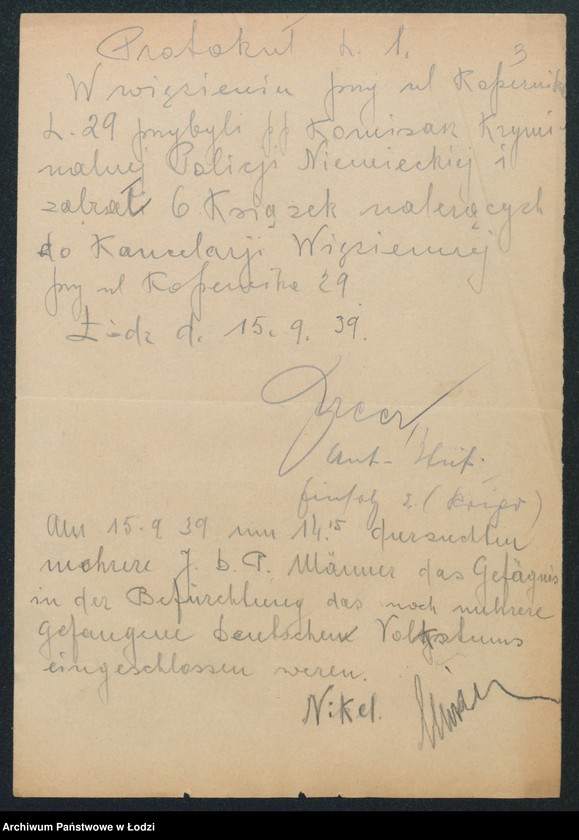 Protokół L. 1.
3
W więzieniu przy ul Kopernika
L. 29 przybyli pp Komisak Krymi-
nalnej Policji Niemieckiej i
zabrał 6 Książek należących
do Kancelarji Więziennej
przy ul Kopernika 29
Łódz d. 15. 9. 39.
Am 15.9 39 um 14.15 dursuchten
mehrere J. b. P. Männer das Gefägnis
in der Befürchtung das noch mehrere
gefangene deutschen Volkstums
eingeschlossen weren.
Nikel.
Archiwum Państwowe w Łodzi